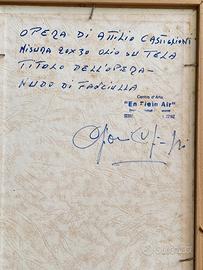 OPERA DI ATTILIO CASTIGLIONI
MISURA 20X30 OLIO SU TELA
TITOLO DELL'OPERA-
NUDO DI FANCIULLA
Centro d'Arte
"En Plein Air"